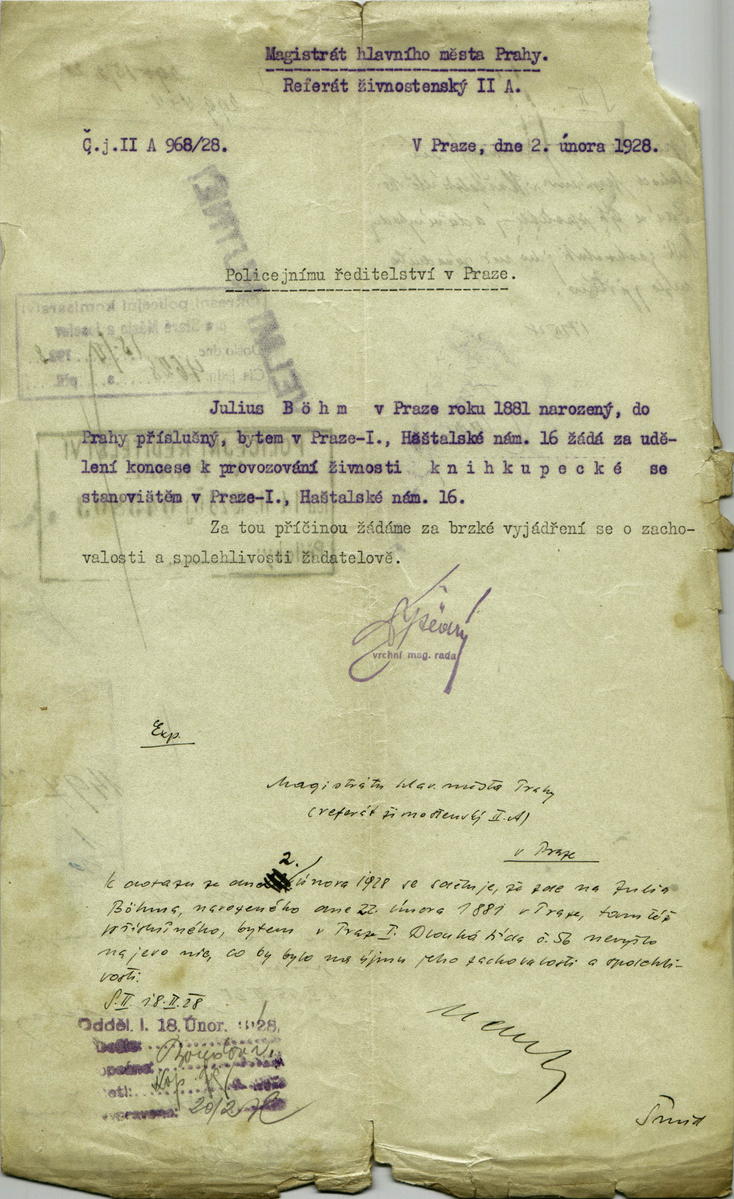 Magistrát hlavního města Prahy.
Referát živnostenský II A.
Č.j.II A 968/28.
V Praze, dne 2. února 1928.
Policejnímu ředitelství v Praze.
Julius Böhm v Praze roku 1881 narozený, do
Prahy příslušný, bytem v Praze-I., Háštalské nám. 16 žádá za udě-
lení koncese k provozování živnosti knihkupecké se
stanovištěm v Praze-I., Haštalské nám. 16.
Za tou příčinou žádáme za brzké vyjádření se o zacho-
valosti a spolehlivosti žadatelově.
vrchní mag. rada
Exp.
Magistrátu hlav. města Prahy
(referát živnostenský II.A)
v Praze
K dotazu ze dne 2. února 1928 se sděluje, že zde na Julia
Böhma, narozeného dne 22. února 1881 v Praze, tamtéž
příslušného, bytem v Praze I. Dlouhá třída č. 56 nevyšlo
na jevo nic, co by bylo na újmu jeho zachovalosti a spolehli-
vosti.
S.II. 18.II.28
Odděl. I. 18. Únor. 1928.
Došlo:
20/2